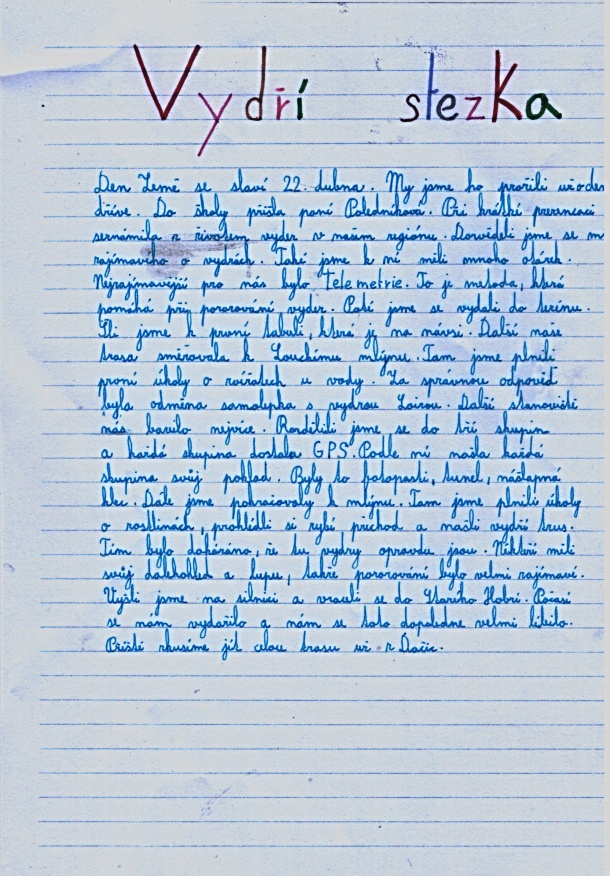 Vydří stezka
Den Země se slaví 22. dubna. My jsme ho prožili už o den
dříve. Do školy přišla paní Poledníková. Při krátké prezentaci
seznámila s životem vyder v našem regiónu. Dozvěděli jsme se m
zajímavého o vydrách. Také jsme k ní měli mnoho otázek.
Nejzajímavější pro nás bylo telemetrie. To je metoda, která
pomáhá při pozorování vyder. Poté jsme se vydali do terénu.
Šli jsme k první tabuli, která je na návsi. Další naše
trasa směřovala k Louckému mlýnu. Tam jsme plnili
první úkoly o zvířatech u vody. Za správnou odpověď
byla odměna samolepka s vydrou Loirou. Další stanoviště
nás bavilo nejvíce. Rozdělili jsme se do tří skupin
a každá skupina dostala GPS. Podle ní našla každá
skupina svůj poklad. Byly to fotopasti, tunel, nášlapná
klec. Dále jsme pokračovaly k mlýnu. Tam jsme plnili úkoly
o rostlinách, prohlédli si rybí přechod a našli vydří trus.
Tím bylo dokázáno, že tu vydry opravdu jsou. Někteří měli
svůj dalekohled a lupu, takže pozorování bylo velmi zajímavé.
Vyšli jsme na silnici a vraceli se do Starého Hobzí. Počasí
se nám vydařilo a nám se toto dopoledne velmi líbilo.
Příště zkusíme jít celou trasu až z Dačic.